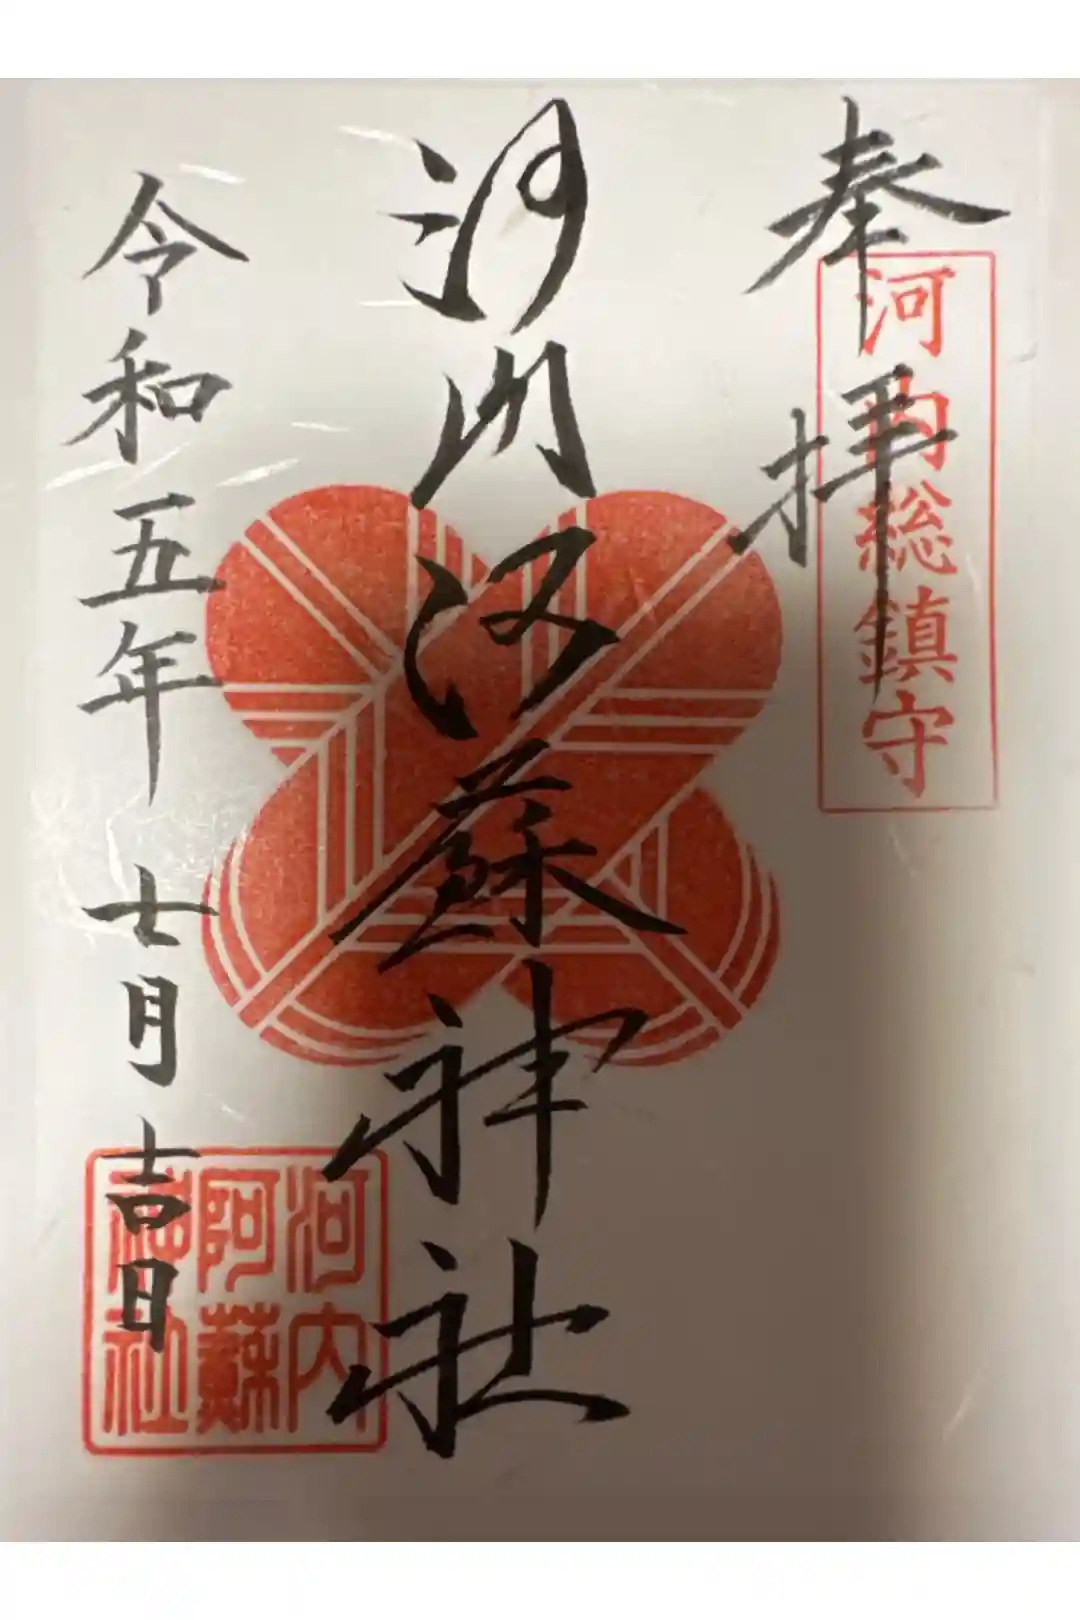 奉拝
河内総鎮守
河内阿蘇神社
令和五年七月吉日
河内
阿蘇
神社